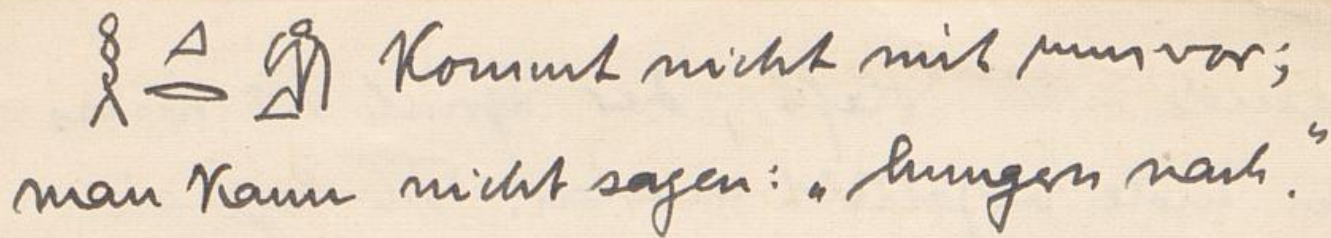 𓎛𓈎𓂋𓀁 Kommt nicht mit 𓈖 vor;
man kann nicht sagen: „hungern nach.“